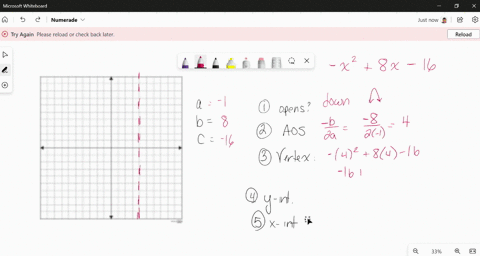 Microsoft Whiteboard
Numerade
Just now
Try Again Please reload or check back later.
Reload
-x² + 8x - 16
a = -1
b = 8
c = -16
① opens? down
② AOS -b/2a = -8/2(-1) = 4
③ Vertex: -(4)² + 8(4) - 16
-16 +
④ y-int.
⑤ x-int
33%